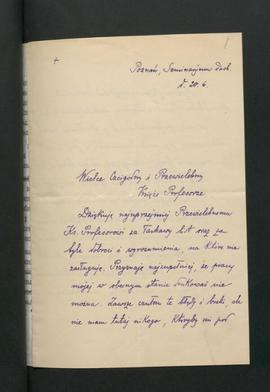 1
+
Poznań, Seminarjum duch.
d. 20. 6.
Wielce Czcigodny i Przewielebny
Księże Profesorze
Dziękuję najuprzejmiej Przewielebnemu
Ks. Profesorowi za łaskawy list oraz za
tyle dobroci i wyrozumienia, na które nie
zasługuję. Przyznaję najzupełniej, że pracy
mojej w obecnym stanie drukować nie
można. Zawsze czułem te błędy i braki, ale
nie mam tutaj nikogo, któryby mi pod